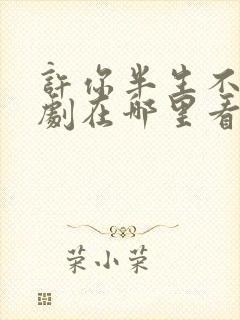 許你半生不
劇在哪里看
荣小荣